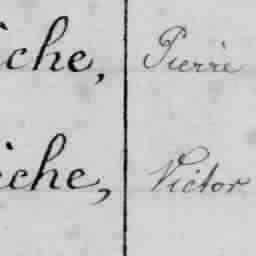 iche, Pierre
iche, Victor